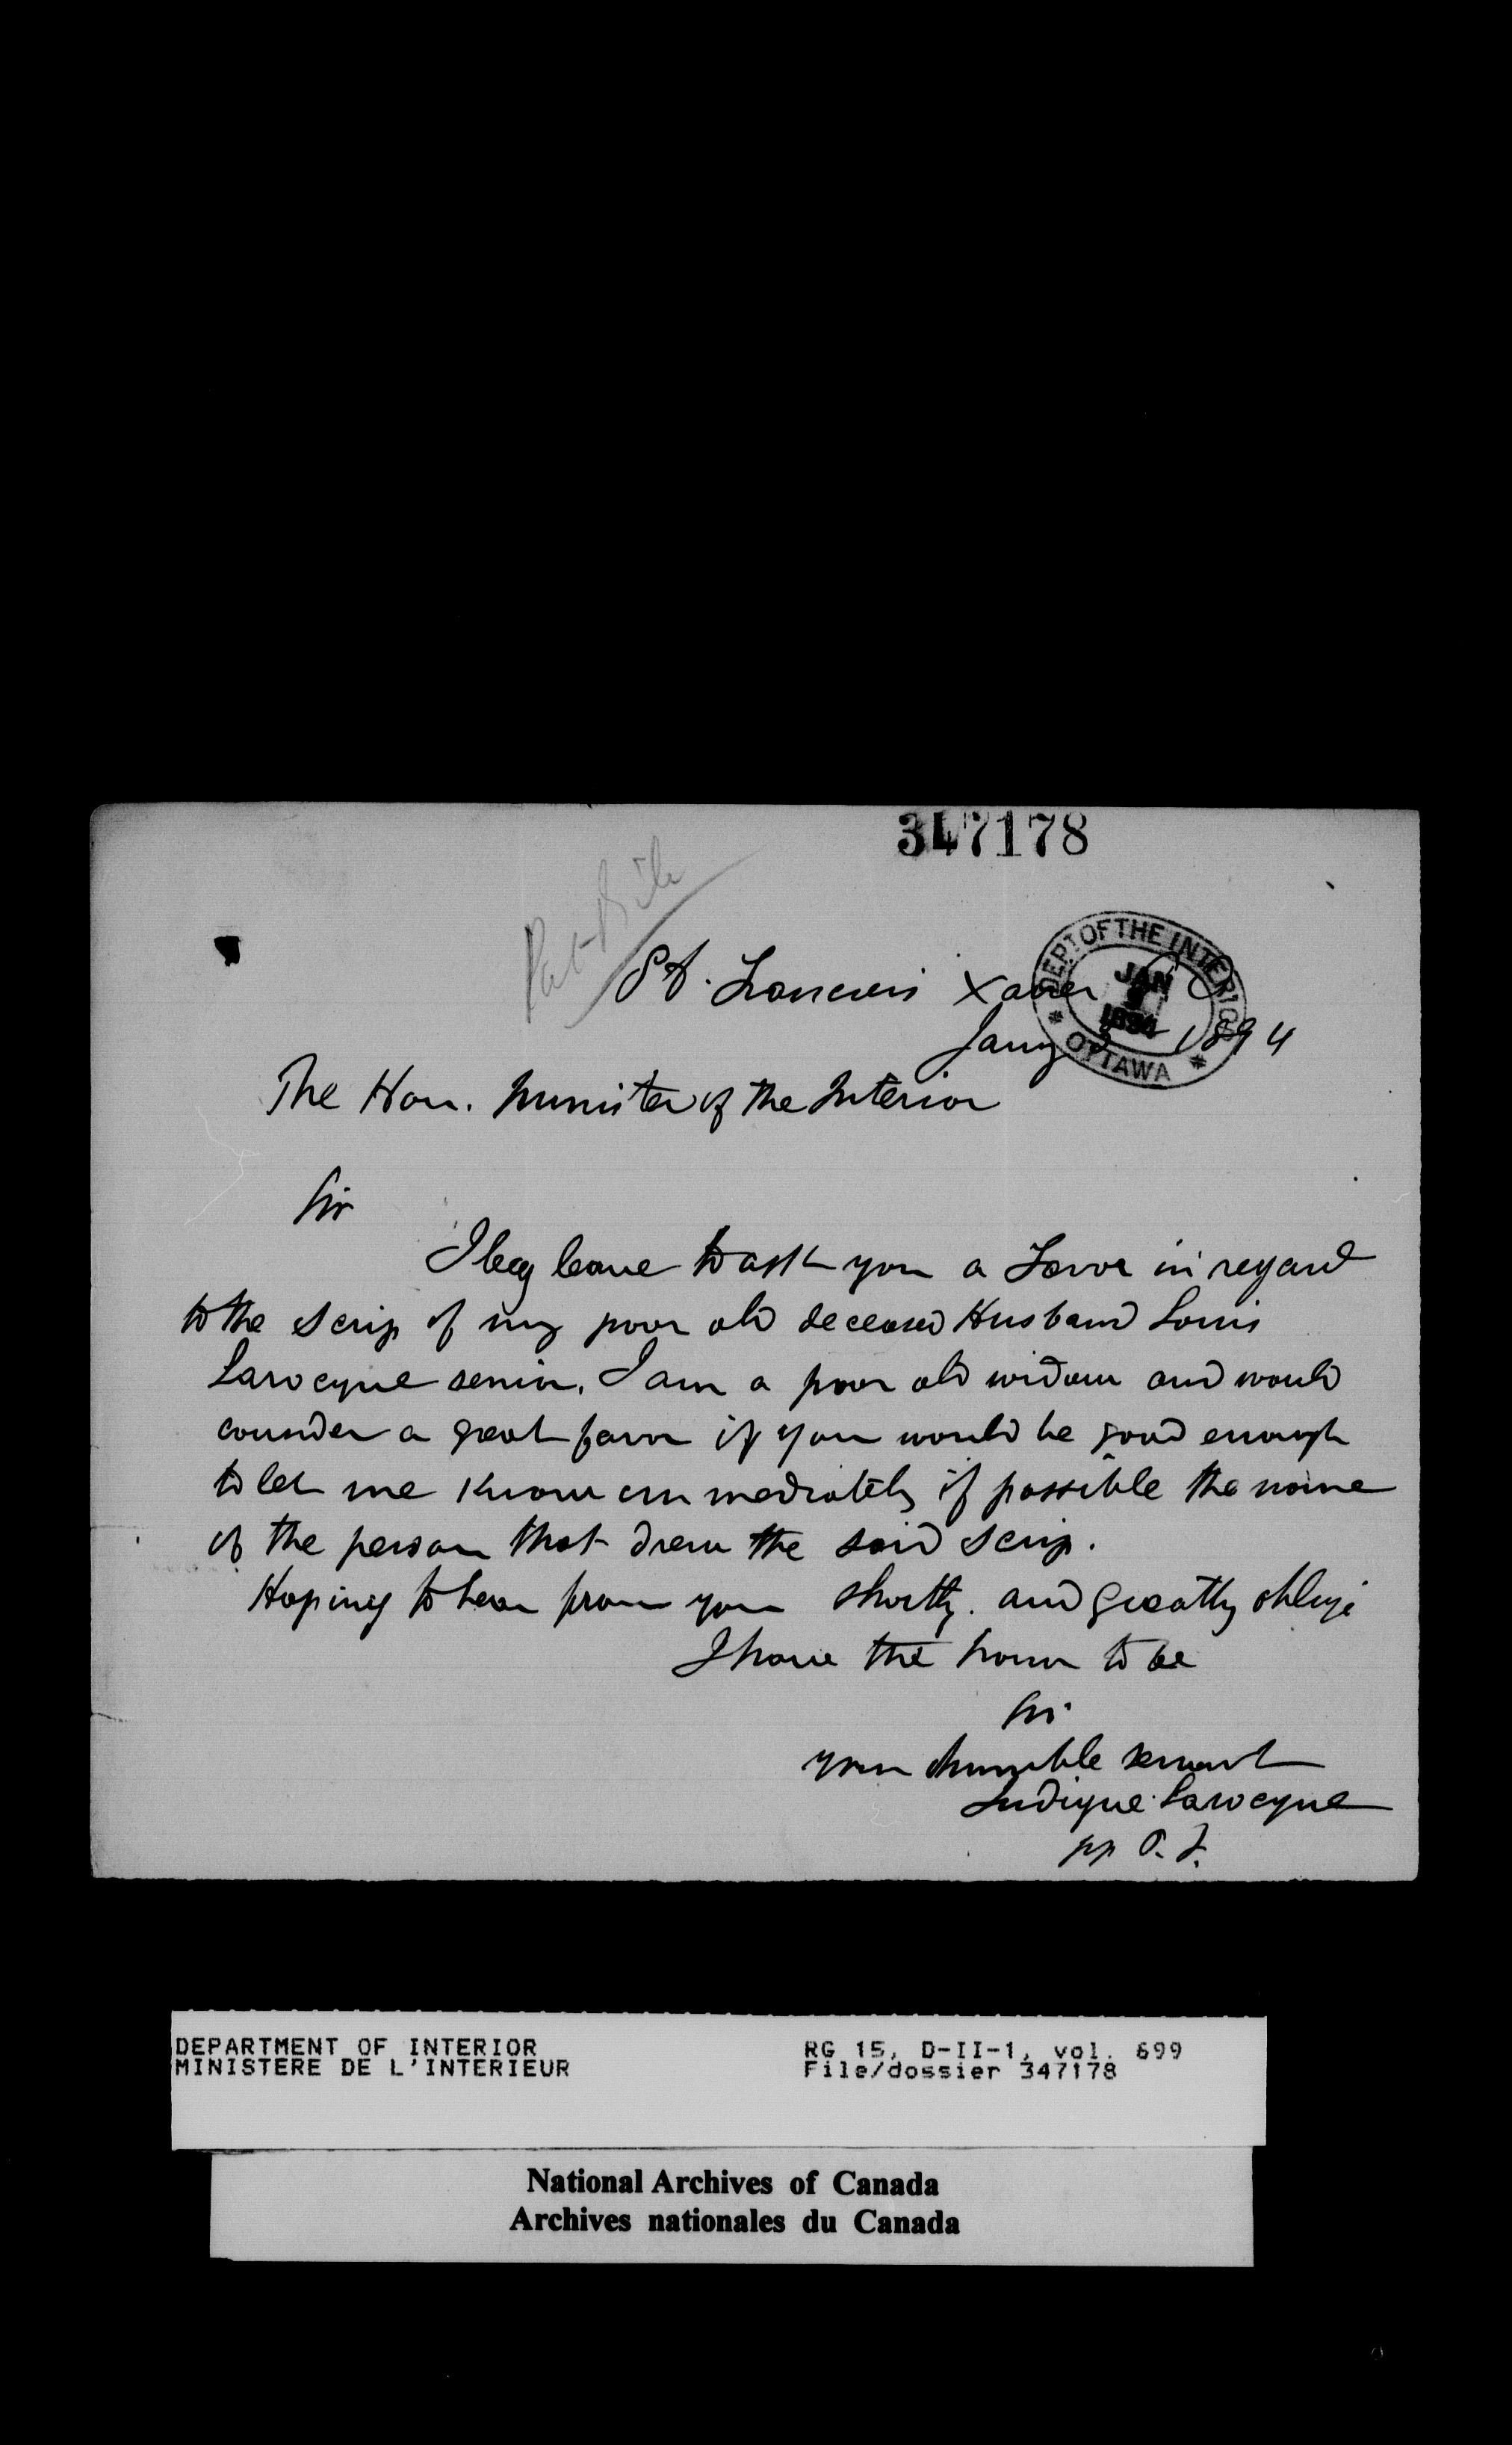 347178
St. Francois Xavier
DEPT OF THE INTERIOR
JAN
1894
OTTAWA
Jany 1894
The Hon. Minister of the Interior
Sir
I beg leave to ask you a Favor in regard
to the scrip of my poor old deceased Husband Louis
Larocque senior. I am a poor old widow and would
consider a great favor if you would be good enough
to let me know immediately if possible the name
of the person that drew the said scrip.
Hoping to hear from you shortly. and greatly oblige
I have the honor to be
Sir
your humble servant
Larocque
pp
DEPARTMENT OF INTERIOR
MINISTERE DE L'INTERIEUR
RG 15, D-II-1, vol. 699
File/dossier 347178
National Archives of Canada
Archives nationales du Canada